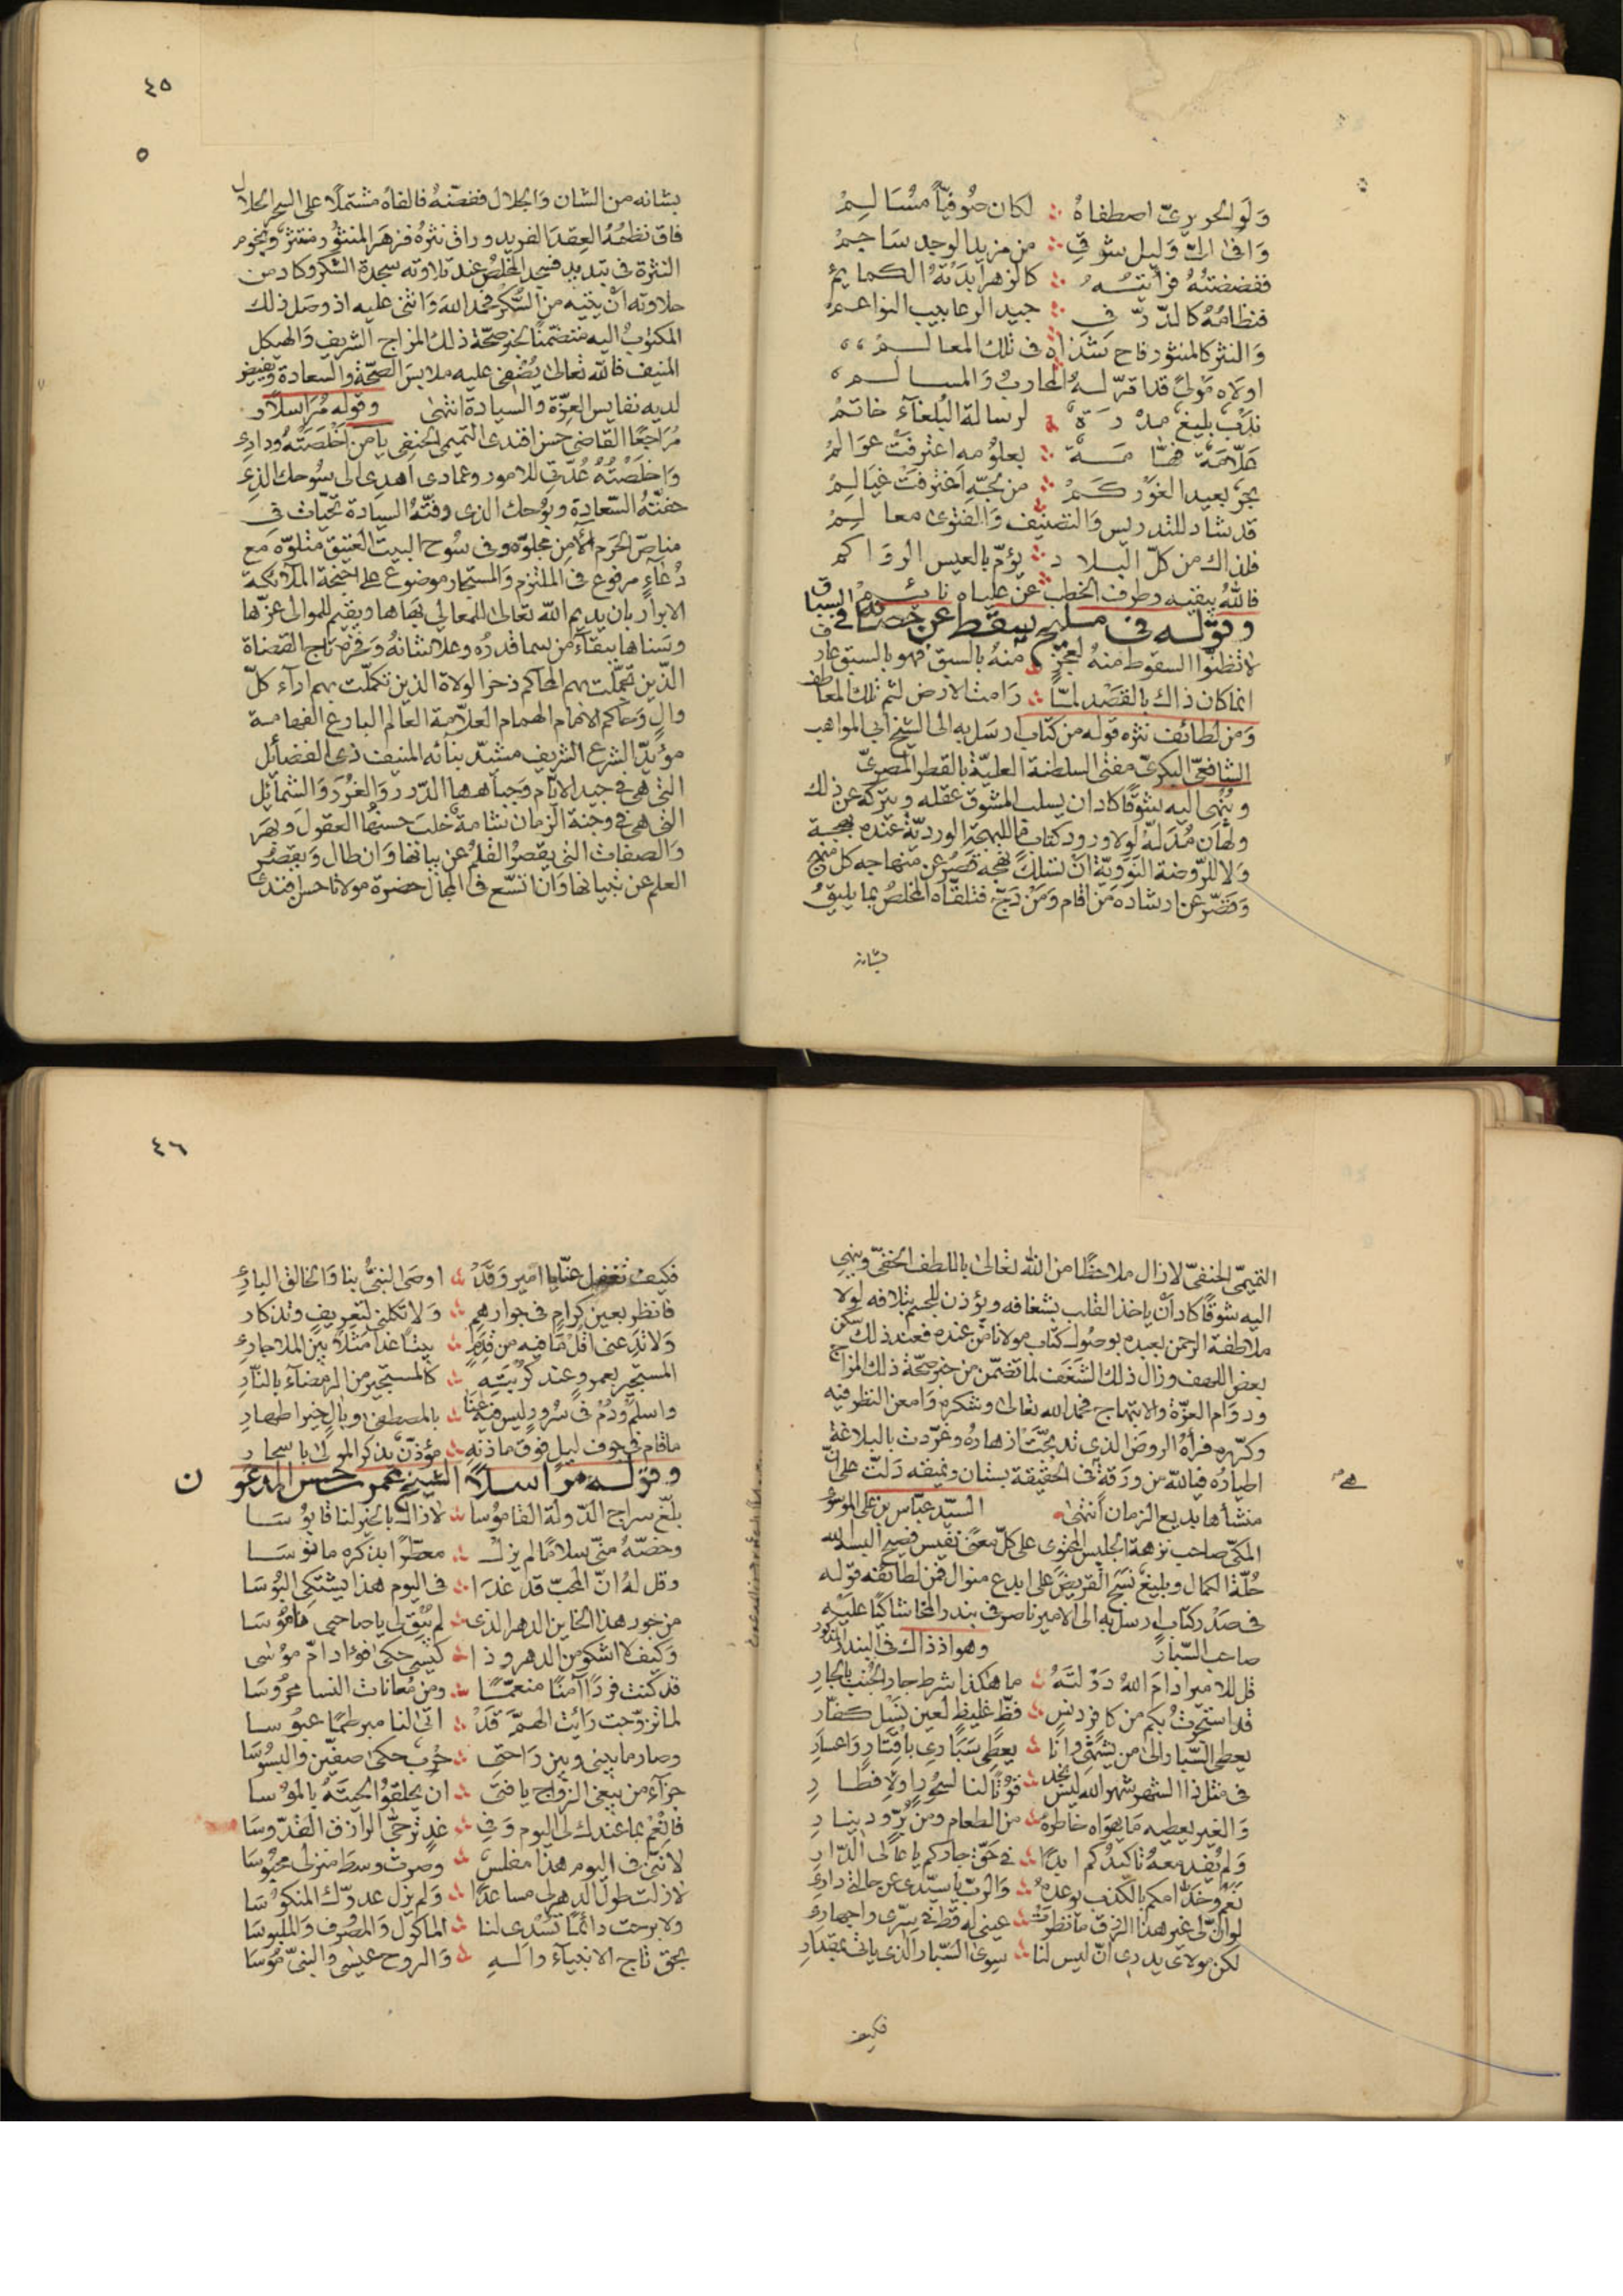 ولو الحريريّ اصطفاه ∴ لكان صوفيّا مسالمْ
وافى اليّ وليل شوقي ∴ من مزيد الوجد ساجمْ
ففضضته فرأيته ∴ كالزهر أبدته الكمايم
فنظامه كالدرّ في ∴ جيد الرعابيب النواعم
والنثر كالمنثور فاح شذاه في تلك المعالم
اولاه مولى قد اقرّ له المحارب والمسالم
ندب بليغ مدره ∴ لرسالة البلغاء خاتم
علّامة فهّامة ∴ بعلومه اعترفت عوالم
بحر بعيد الغور كم ∴ من لجّه اغترفت غيالم
قد شاد للتدريس والتصنيف والفتوى معالم
فلذاك من كلّ البلاد ∴ يؤمّ بالعيس الرواكم
فالله يبقيه وطرف الخطب عن علياه نائم
وقوله في مليح سقط عن حصان في السباق
لا تظنوا السقوط منه لعجز ∴ منه بالسبق فهو بالسبق عارف
انما كان ذاك بالقصد لمّا ∴ رامت الارض لثم تلك المعاطف
ومن لطائف نثره قوله من كتاب ارسل به الى الشيخ ابي المواهب
الشافعيّ البكريّ مفتى السلطنة العليّة بالقطر المصريّ
وينهى اليه تشوّقا كاد ان يسلب المشوق عقله ويتركه عن ذلك
ولهان مدلّه لولا ورود كتاب ما للبهجة الورديّة عنده بهجة
ولا للروضة النوويّة ان تسلك نهجه قصر عن منهاجه كل منهج
وقصّر عن ارشاده من اقام ومن دجّ فتلقّاه المخلص بما يليق
بشانه
٤٥
٥
بشانه من الشان والجلال ففضّه فالفاه مشتملا على السحر الحلال
فاق نظمه العقد الفريد وراق نثره فزهر المنثور منتثر ونجوم
النثرة في تبديد فسجد المخلص عند تلاوته سجدة الشكر وكاد من
حلاوته أن يثنيه من السّكر فحمد الله واثنى عليه اذ وصل ذلك
المكتوب اليه متضمّنا لخبر صحّة ذلك المزاج الشريف والهيكل
المنيف فالله تعالى يضفي عليه ملابس الصحّة والسعادة ويفيض
لديه نفايس العزّة والسيادة انتهى وقوله مراسلا و
مراجعا القاضي حسن افندى التميمي الحنفي يا من اخلصته ودادي
واخلصته عدّتي للامور وعمادى اهدى الى سوحك الذى
حفّته السعادة وبوحك الذى وفته السيادة تحيّات في
مناصّ الحرم الآمن مجلوّه وفى سوح البيت العتيق متلوّه مع
دعاء مرفوع في الملتزم والمستجار موضوع على اجنحة الملائكة
الابرار بان يديم الله تعالى للمعالي بهاها ويقيم للموالى عزّها
وسناها ببقاء من سما قدره وعلا شانه وفخره تاج القضاة
الذين تجمّلت بهم المحاكم ذخر الولاة الذين تكمّلت بهم اراء كلّ
وال وحاكم الامام الهمام العلّامة العالم البارع الفهامة
مؤيّد الشرع الشريف مشيّد بنائه المنيف ذى الفضائل
التى هى في جيد الايّام وجباهها الدّرر والغرر والشمائل
التى هى في وجنة الزمان شامة خلب حسنها العقول وبهر
والصفات التى يقصر القلم عن بيانها وان طال ويقصر
العلم عن تبيانها وان اتّسع في المجال حضرة مولانا حسن افندى
التميميّ الحنفيّ لا زال ملاحظا من الله تعالى باللطف الخفيّ وينهى
اليه شوقا كاد أن ياخذ القلب بشغافه ويؤذن للجسم بتلافه لولا
ملاطفة الرحمن بعبده بوصول كتاب مولانا من عنده فعند ذلك سكن
بعض اللهف وزال ذلك الشغف لما تضمّن من خبر صحّة ذلك المزاج
ودوام العزّة والابتهاج فحمد الله تعالى وشكره وامعن النظر فيه
وكرّره فرآه الروض الذي تدبّجت ازهاره وغرّدت بالبلاغة
اطياره فيالله من ورقة في الحقيقة بستان ونميقه دلّت على انّ
منشأها بديع الزمان انتهى السيّد عبّاس بن على الموسوى
المكّى صاحب نزهة الجليس المحتوى على كلّ معنى نفيس فصيح البسه الله
حلّة الكمال وبليغ نسج القريض على ابدع منوال فمن لطائفه قوله
في صدر كتاب ارسل به الى الامير ناصر في بندر المخا شاكيا عليه
صاحب السّبار وهو اذ ذاك في البندر المذكور
قل للامير ادام الله دولته ∴ ما هكذا شرط جار الجنب بالجار
قد استجرت بكم من كافر دنس ∴ فظّ غليظ لعين نسل كفّار
يعطى السّبار الى من يشتهى وانا ∴ يعطى سبارى باقتار واعسار
في مثل ذا الشهر شهر الله ليس نجد ∴ قوتا لنا لسحور او لافطار
والغير يعطيه ما يهواه خاطره ∴ من الطعام ومن برّ ودينار
ولم يفد معه تاكيدكم ابدا ∴ في حقّ جاركم يا عالى الدّار
نعم وخدّامكم بالكذب يوعده ∴ والربّ يا سيّدى عن حالتي دارى
لو انّ لى غير هذا الرزق ما نظرت ∴ عيني له قط في سرّى واجهارى
لكن مولاى يدرى انّ ليس لنا ∴ سوى السّبار الذى ياتى بمقدار
فكيف
٤٦
فكيف تغفل عنّا يا امير وقد ∴ اوصى النبيّ بنا والخالق البارى
فانظر بعين كرام في جوارهم ∴ ولا تكلني لتعريف وتذكار
ولا تدعنى اقل ما فيه من قدم ∴ بيتا غدا مثلا بين الملا جارى
المستجير بعمرو عند كربته ∴ كالمستجير من الرمضاء بالنّار
واسلم ودم في سرور ليس فيه عنا ∴ بالمصطفى وبال خير اطهار
ما قام في جوف ليل فوق ماذنه ∴ مؤذّن بذكر المولى باسحار
وقوله مراسلا الشيخ عمر حسن المدعو ن
بلّغ سراج الدّولة القاموسا ∴ لا زال بالخير لنا قابوسا
وخصّه منّى سلاما لم يزل ∴ معطّرا بذكره مانوسا
وقل له انّ المحبّ قد غدا ∴ في اليوم هذا يشتكى البوسا
من جور هذا الخاين الدهر الذى ∴ لم يبق لى يا صاحبى فاموسا
وكيف لا اشكو من الدهر وذا ∴ كيسى حكى فؤاد امّ موسى
قد كنت فردا آمنا منعمّا ∴ ومن معانات النسا محروسا
لما تزوّجت رايت الهمّ قد ∴ اتى لنا مبرطما عبوسا
وصار ما بيني وبين راحتي ∴ حرب حكى صفّين والبسوسا
جزاء من يبغى الزواج يا فتى ∴ ان يحلقوا لحيته بالموسا
فانعم بما عندك لى اليوم وفي ∴ غد ترجّى الرازق القدّوسا
لانّني في اليوم هذا مفلس ∴ وصرت وسط منزلى محبوسا
لا زلت طول الدهر لى مساعدا ∴ ولم يزل عدوّك المنكوسا
ولا برحت دائما تسدى لنا ∴ الماكول والمصروف والملبوسا
بحق تاج الانبياء واله ∴ والروح عيسى والنبيّ موسا